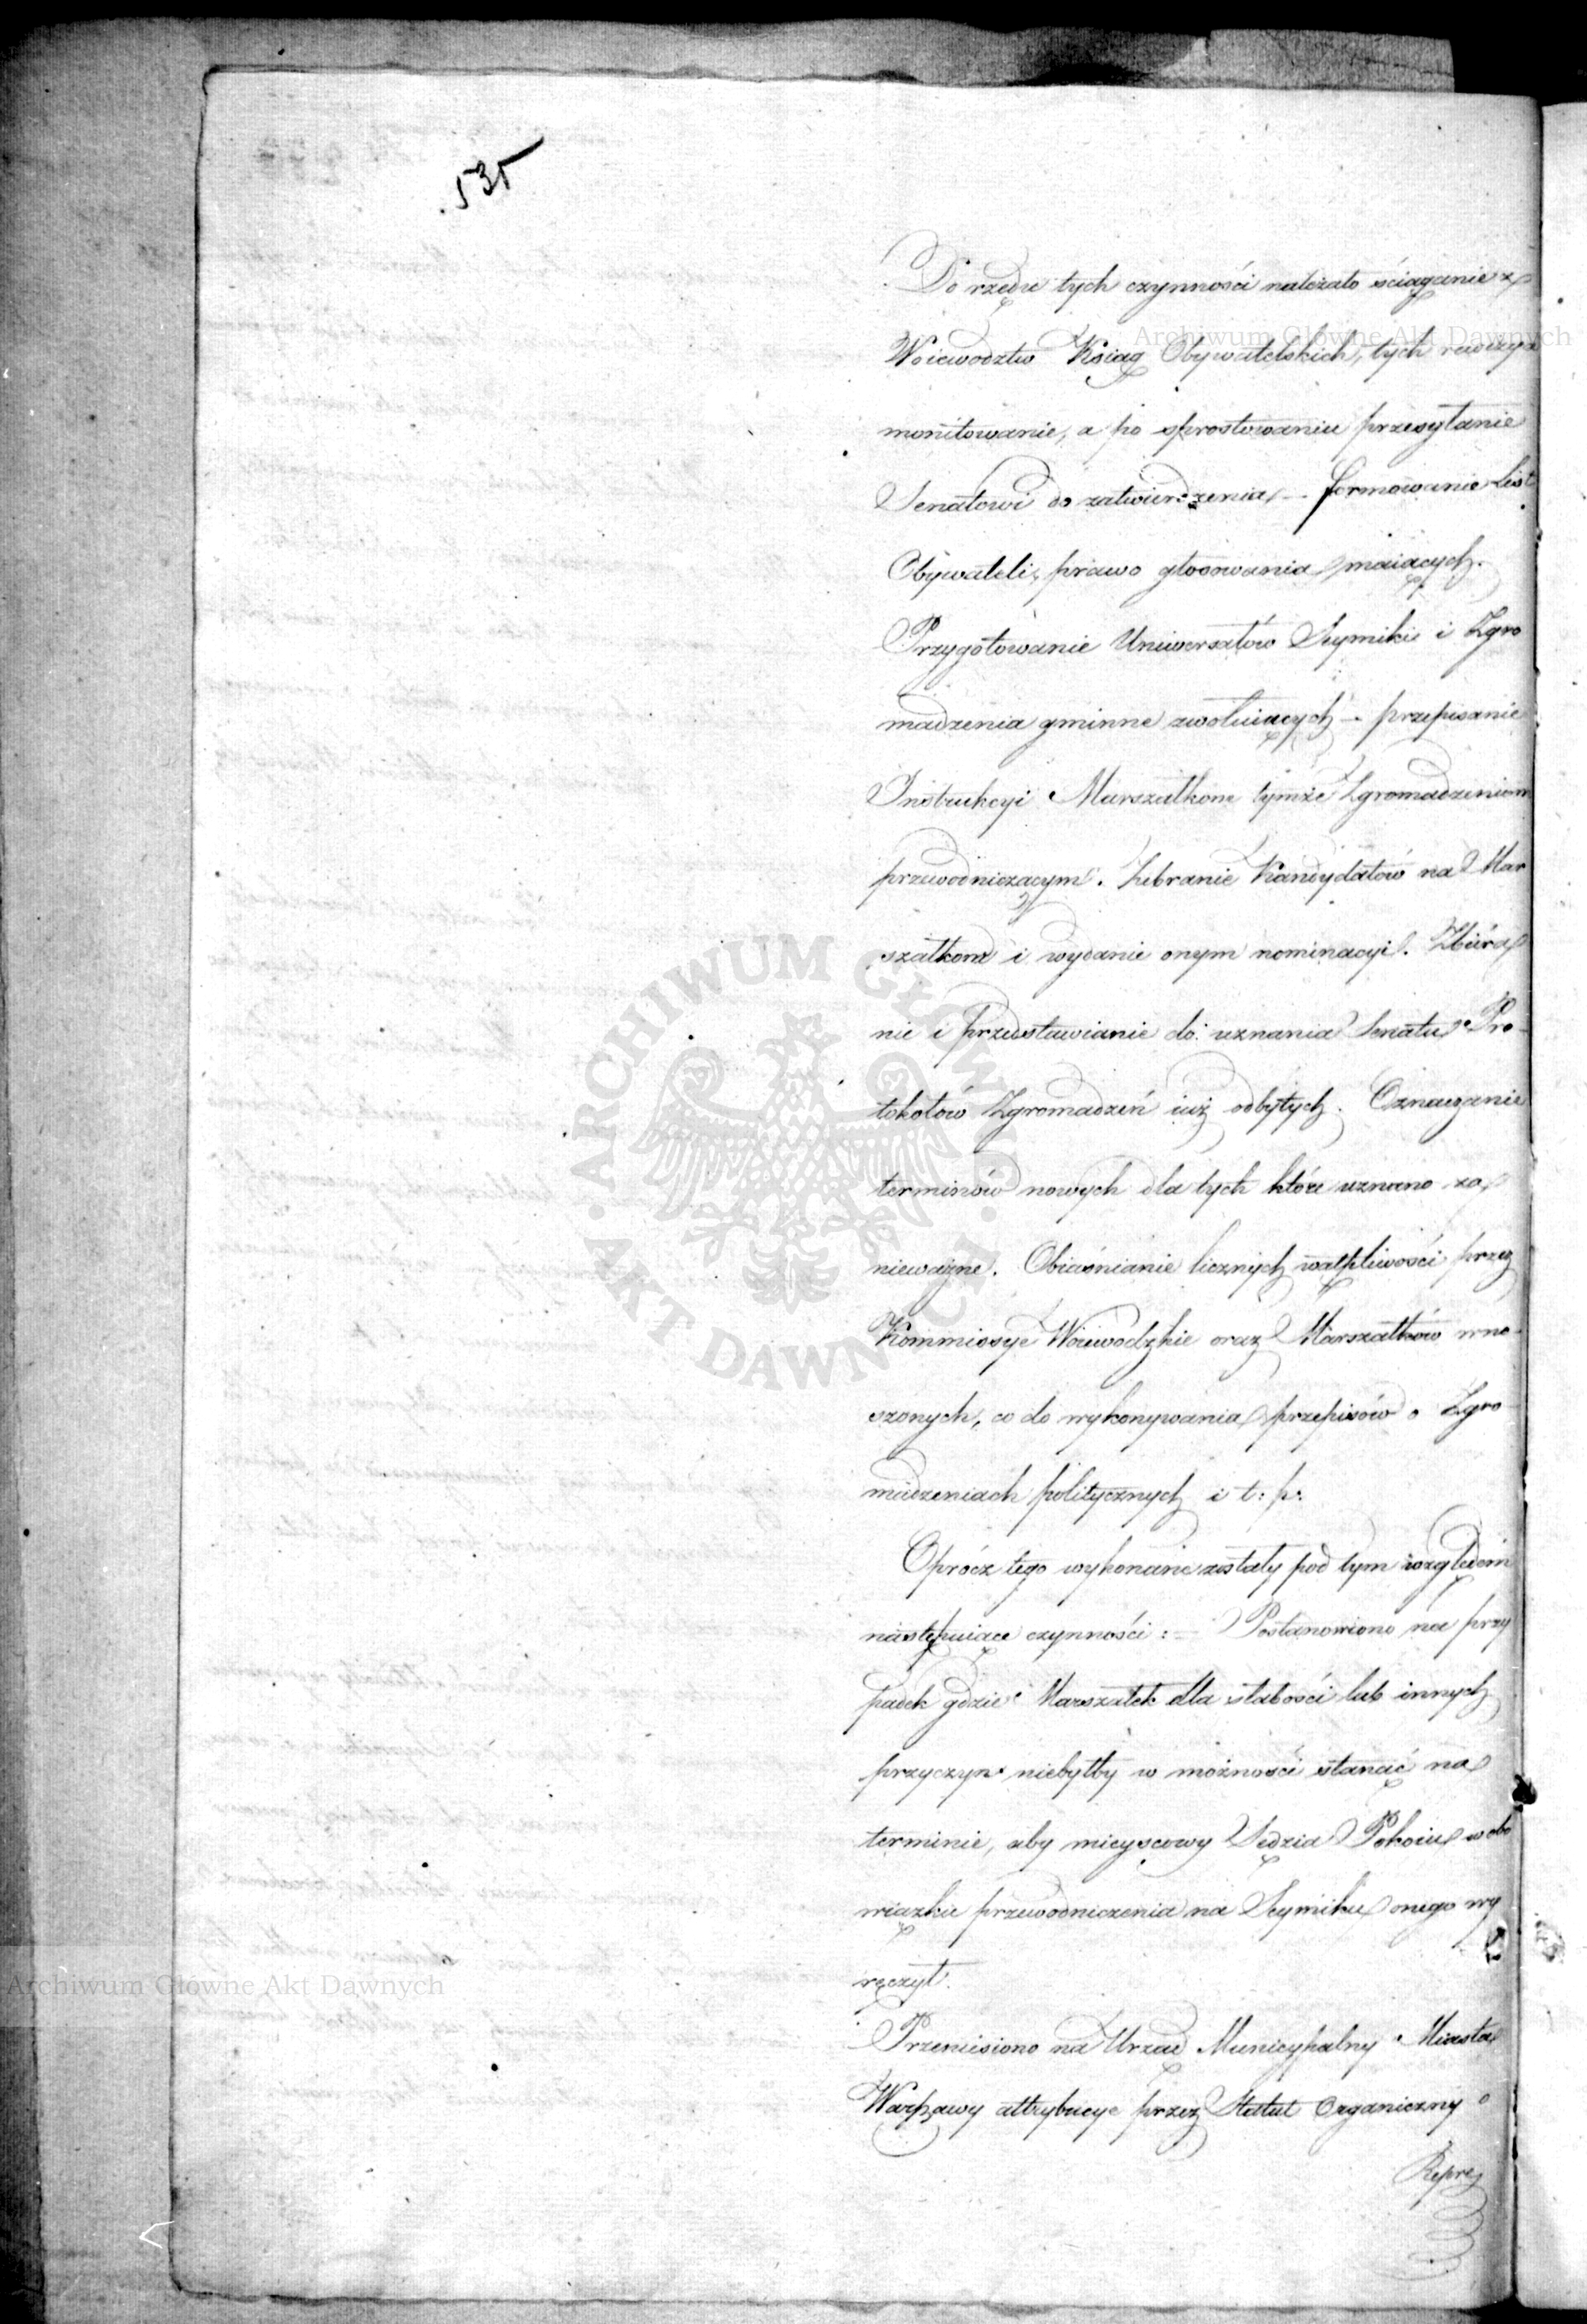 535
Do rzędu tych czynności należało ściąganie z
Woiewodztw Ksiąg Obywatelskich, tych rewizya
monitowanie, a po sprostowaniu przesyłanie
Senatowi do zatwierdzenia, — formowanie List
Obywateli, prawo głosowania maiących.
Przygotowanie Uniwersałów Seymiki i Zgro
madzenia gminne zwołuiących — przepisanie
Instrukcyi Marszałkom tymże Zgromadzeniom
przewodniczącym. Zebranie Kandydatów na Mar
szałkow i wydanie onym nominacyi. Zbiéra
nie i przedstawianie do uznania Senatu Pro-
tokołów Zgromadzeń iuż odbytych. Oznaczanie
terminów nowych dla tych które uznano za
nieważne. Obiaśnianie licznych wątpliwości przez
Kommissye Woiewodzkie oraz Marszałków wno-
szonych, co do wykonywania przepisów o Zgro
madzeniach politycznych i t: p:
Oprócz tego wykonane zostały pod tym względem
następuiące czynności: — Postanowiono na przy
padek gdzie Marszałek dla słabości lub innych
przyczyn niebyłby w możności stanąć na
terminie, aby mieyscowy Sędzia Pokoiu w obo
wiązku przewodniczenia na Seymiku onego wy
ręczył.
Przeniesiono na Urząd Municypalny Miasta
Warszawy attrybucye przez Statut Organiczny o
Repre
Archiwum Główne Akt Dawnych
Archiwum Główne Akt Dawnych
ARCHIWUM GŁÓWNE · AKT DAWNYCH ·